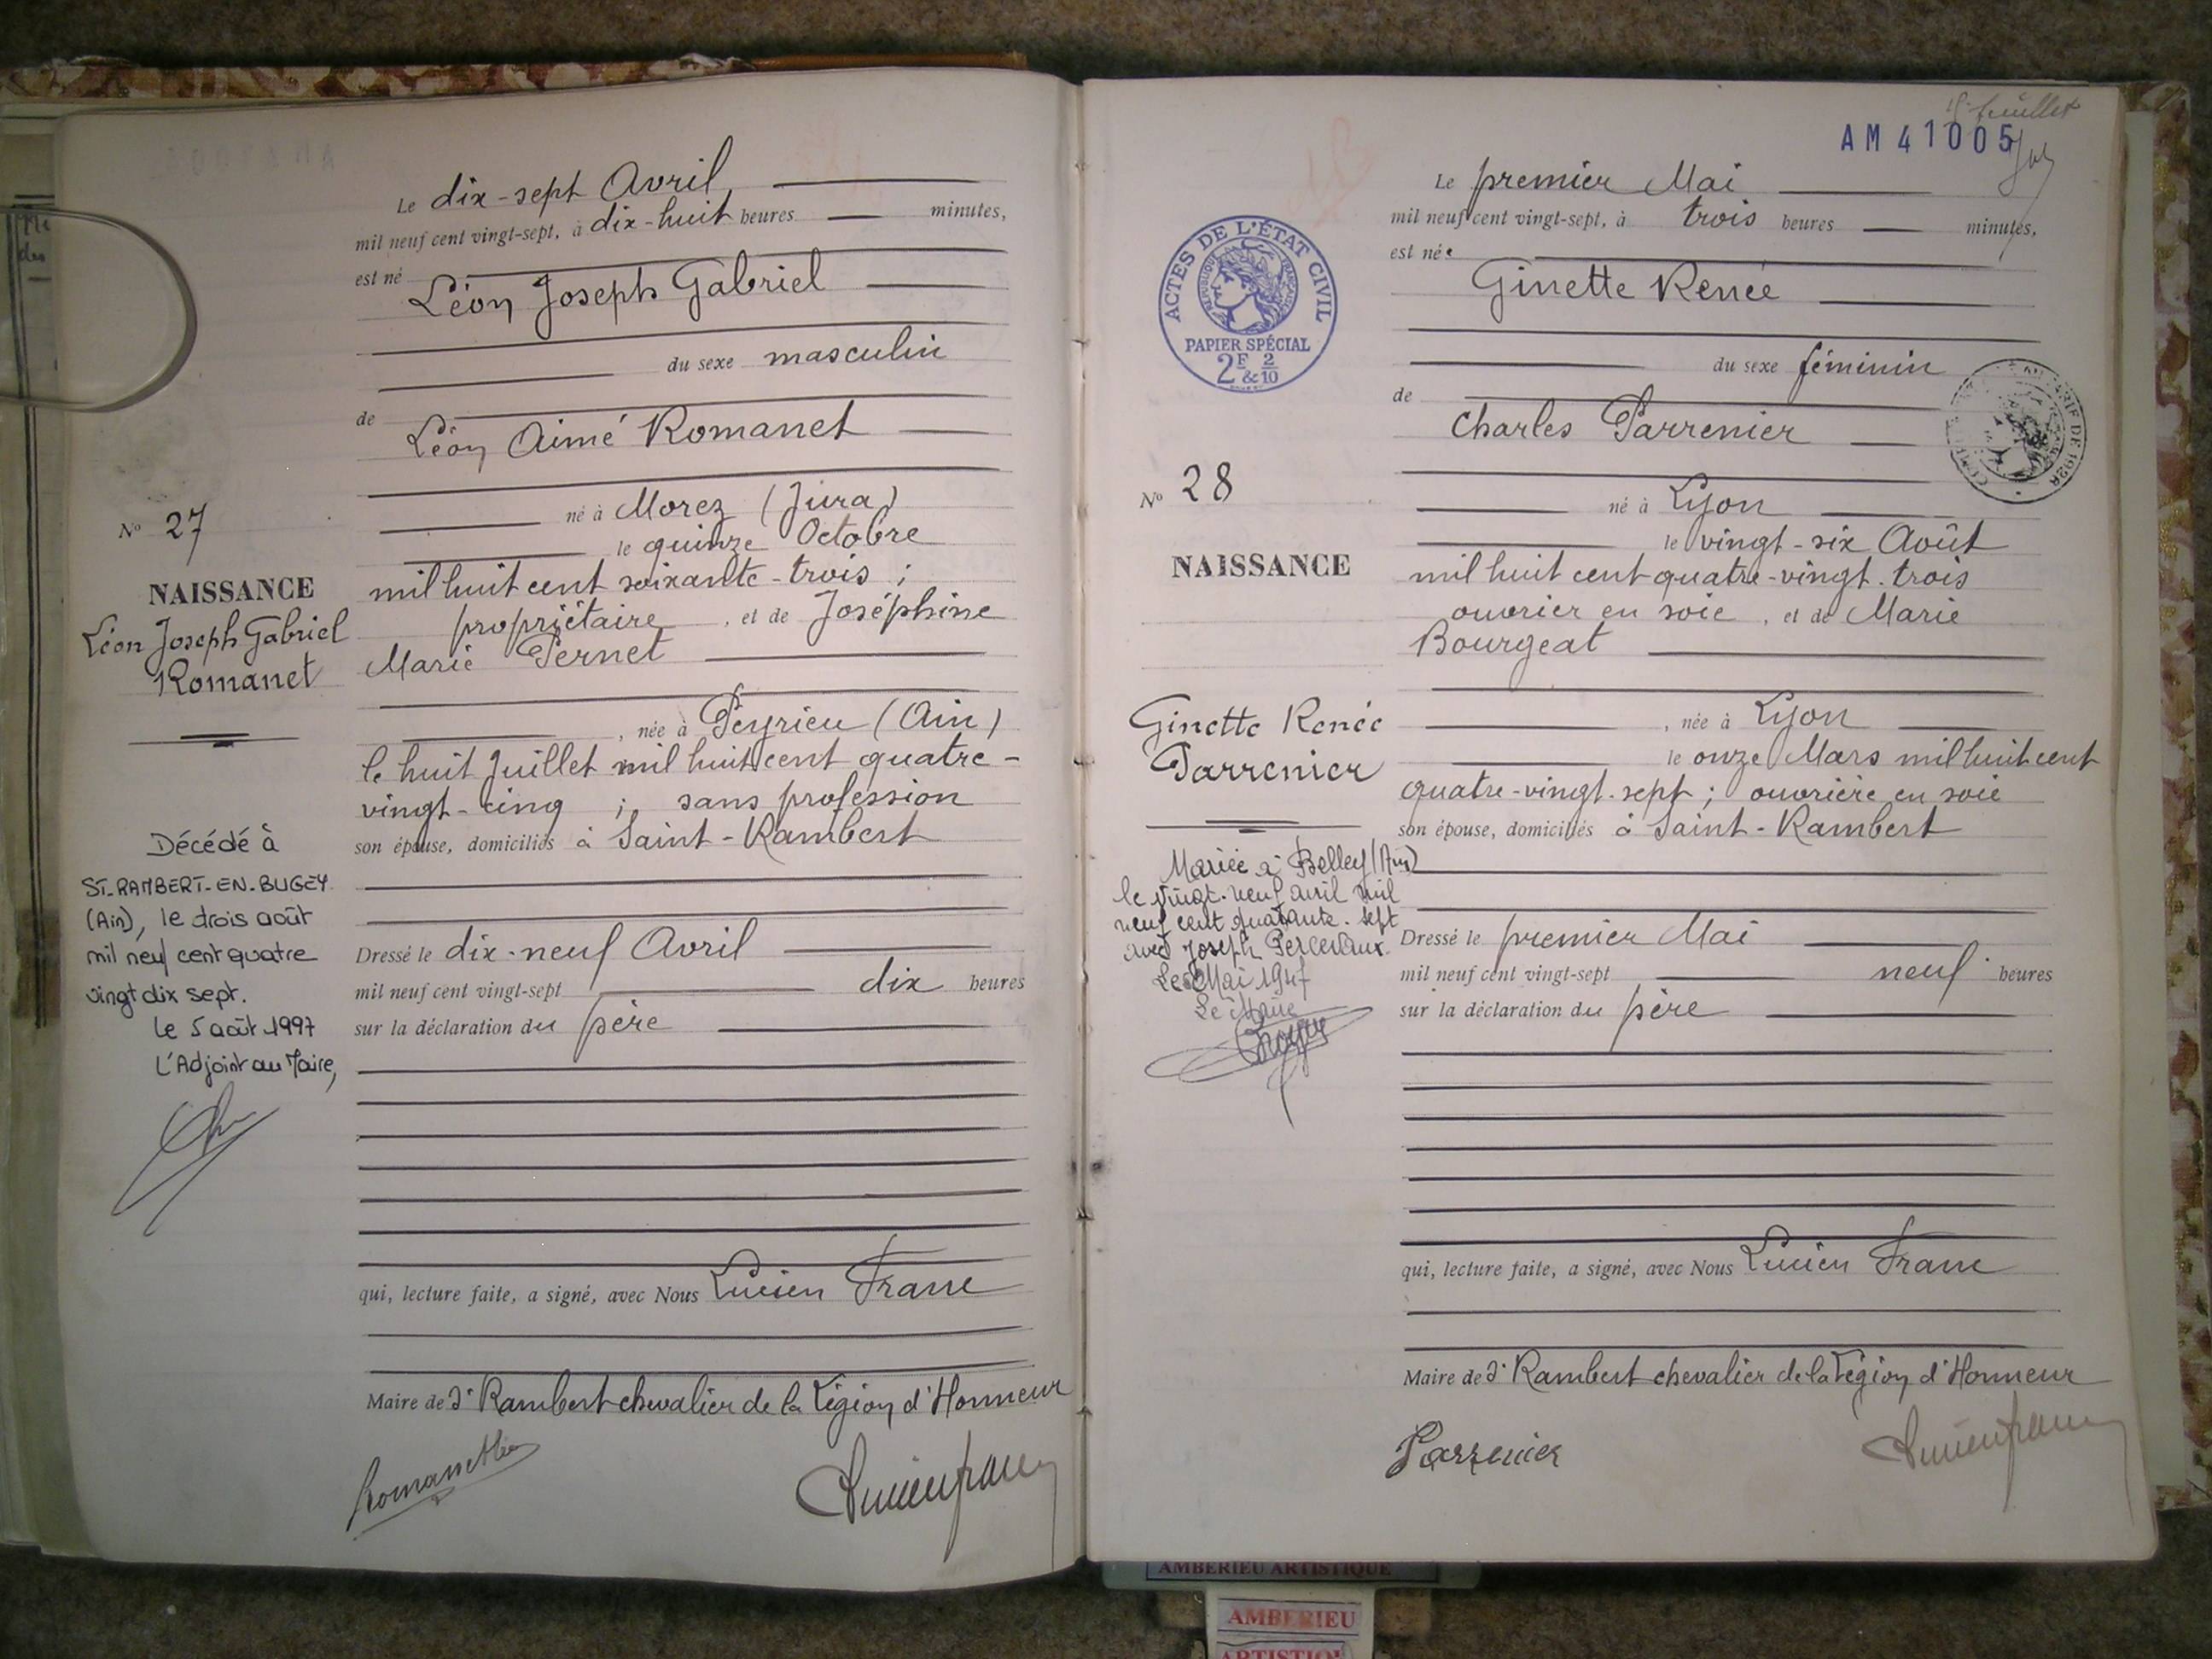 Le dix-sept Avril,
mil neuf cent vingt-sept, à dix-huit heures minutes,
est né
Léon Joseph Gabriel
du sexe masculin
de
Léon Aimé Romanet
né à Morez (Jura)
le quinze Octobre
mil huit cent soixante-trois ;
propriétaire, et de Joséphine
Marie Pernet
, née à Peyrieu (Ain)
le huit Juillet mil huit cent quatre-
vingt-cinq ; sans profession
son épouse, domiciliés à Saint-Rambert
Dressé le dix-neuf Avril
mil neuf cent vingt-sept dix heures
sur la déclaration du père
qui, lecture faite, a signé, avec Nous Lucien Franc
Maire de St Rambert chevalier de la Légion d'Honneur
N° 27
NAISSANCE
Léon Joseph Gabriel
Romanet
Décédé à
ST-RAMBERT-EN-BUGEY
(Ain), le trois août
mil neuf cent quatre
vingt dix sept.
Le 5 août 1997
L'Adjoint au Maire,
feuillet
AM 41005
Le premier Mai
mil neuf cent vingt-sept, à trois heures minutes,
est née
Ginette Renée
du sexe féminin
de
Charles Parrenier
né à Lyon
le vingt-six Août
mil huit cent quatre-vingt-trois
ouvrier en soie, et de Marie
Bourgeat
, née à Lyon
le onze Mars mil huit cent
quatre-vingt-sept ; ouvrière en soie
son épouse, domiciliés à Saint-Rambert
Dressé le premier Mai
mil neuf cent vingt-sept neuf heures
sur la déclaration du père
qui, lecture faite, a signé, avec Nous Lucien Franc
Maire de St Rambert chevalier de la Légion d'Honneur
Parrenier
ACTES DE L'ÉTAT CIVIL
RÉPUBLIQUE FRANÇAISE
PAPIER SPÉCIAL
2F & 2/10
N° 28
NAISSANCE
Ginette Renée
Parrenier
Mariée à Belley (Ain)
le vingt-neuf avril mil
neuf cent quarante-sept
avec Joseph Percevaux.
Mai 1947
Le Maire
DE 1928
AMBERIEU ARTISTIQUE
AMBERIEU